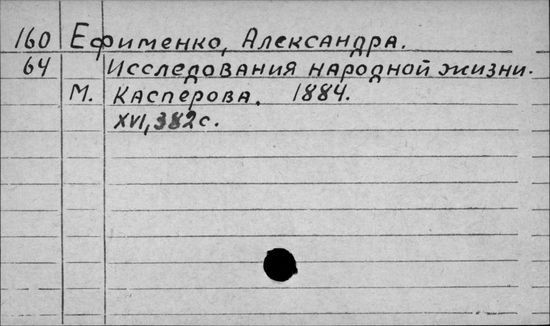 160 Ефименко, Александра.
64 Исследования народной жизни.
М. Касперова. 1884.
XVI, 382 с.